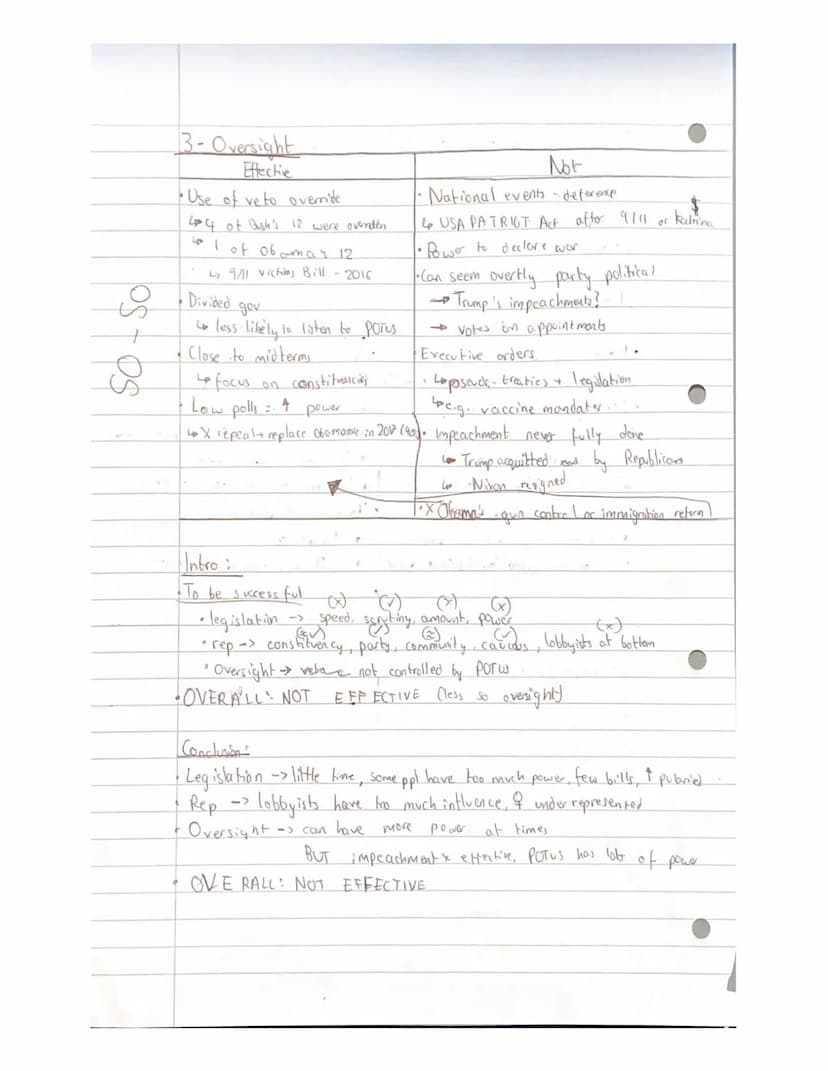 3 - Oversight
Effective
Not
• Use of veto override
↳ 4 of Bush's 12 were overridden
↳ 1 of Obama's 12
↳ 9/11 Victims Bill - 2016
• Divided gov
↳ less likely to listen to POTUS
• Close to midterms
↳ focus on constituencies
• Low polls = ↑ power
↳ X repeal + replace Obamacare in 2017
50-50
• National events - deference
↳ USA PATRIOT Act after 9/11 or Katrina $
• Power to declare war
• Can seem overtly party political
→ Trump's impeachments?
→ votes on appointments
Executive orders
↳ pseudo-treaties + legislation
↳ e.g. vaccine mandates
• Impeachment never fully done
↳ Trump acquitted by Republicans
↳ Nixon resigned
• X Obama's gun control or immigration reform
Intro:
• To be successful
(x) (✓) (x) (x)
• legislation -> speed, scrutiny, amount, power
(✓) (≈) (✓) (x)
• rep -> constituency, party, community, caucus, lobbyists at bottom
• Oversight → not controlled by POTUS
• OVERALL: NOT EFFECTIVE (less so oversight)
Conclusion:
• Legislation -> little time, some ppl have too much power, few bills, ↑
• Rep -> lobbyists have too much influence, ♀ underrepresented
• Oversight -> can have more power at times
BUT impeachment x effective, POTUS has lots of power
• OVERALL: NOT EFFECTIVE